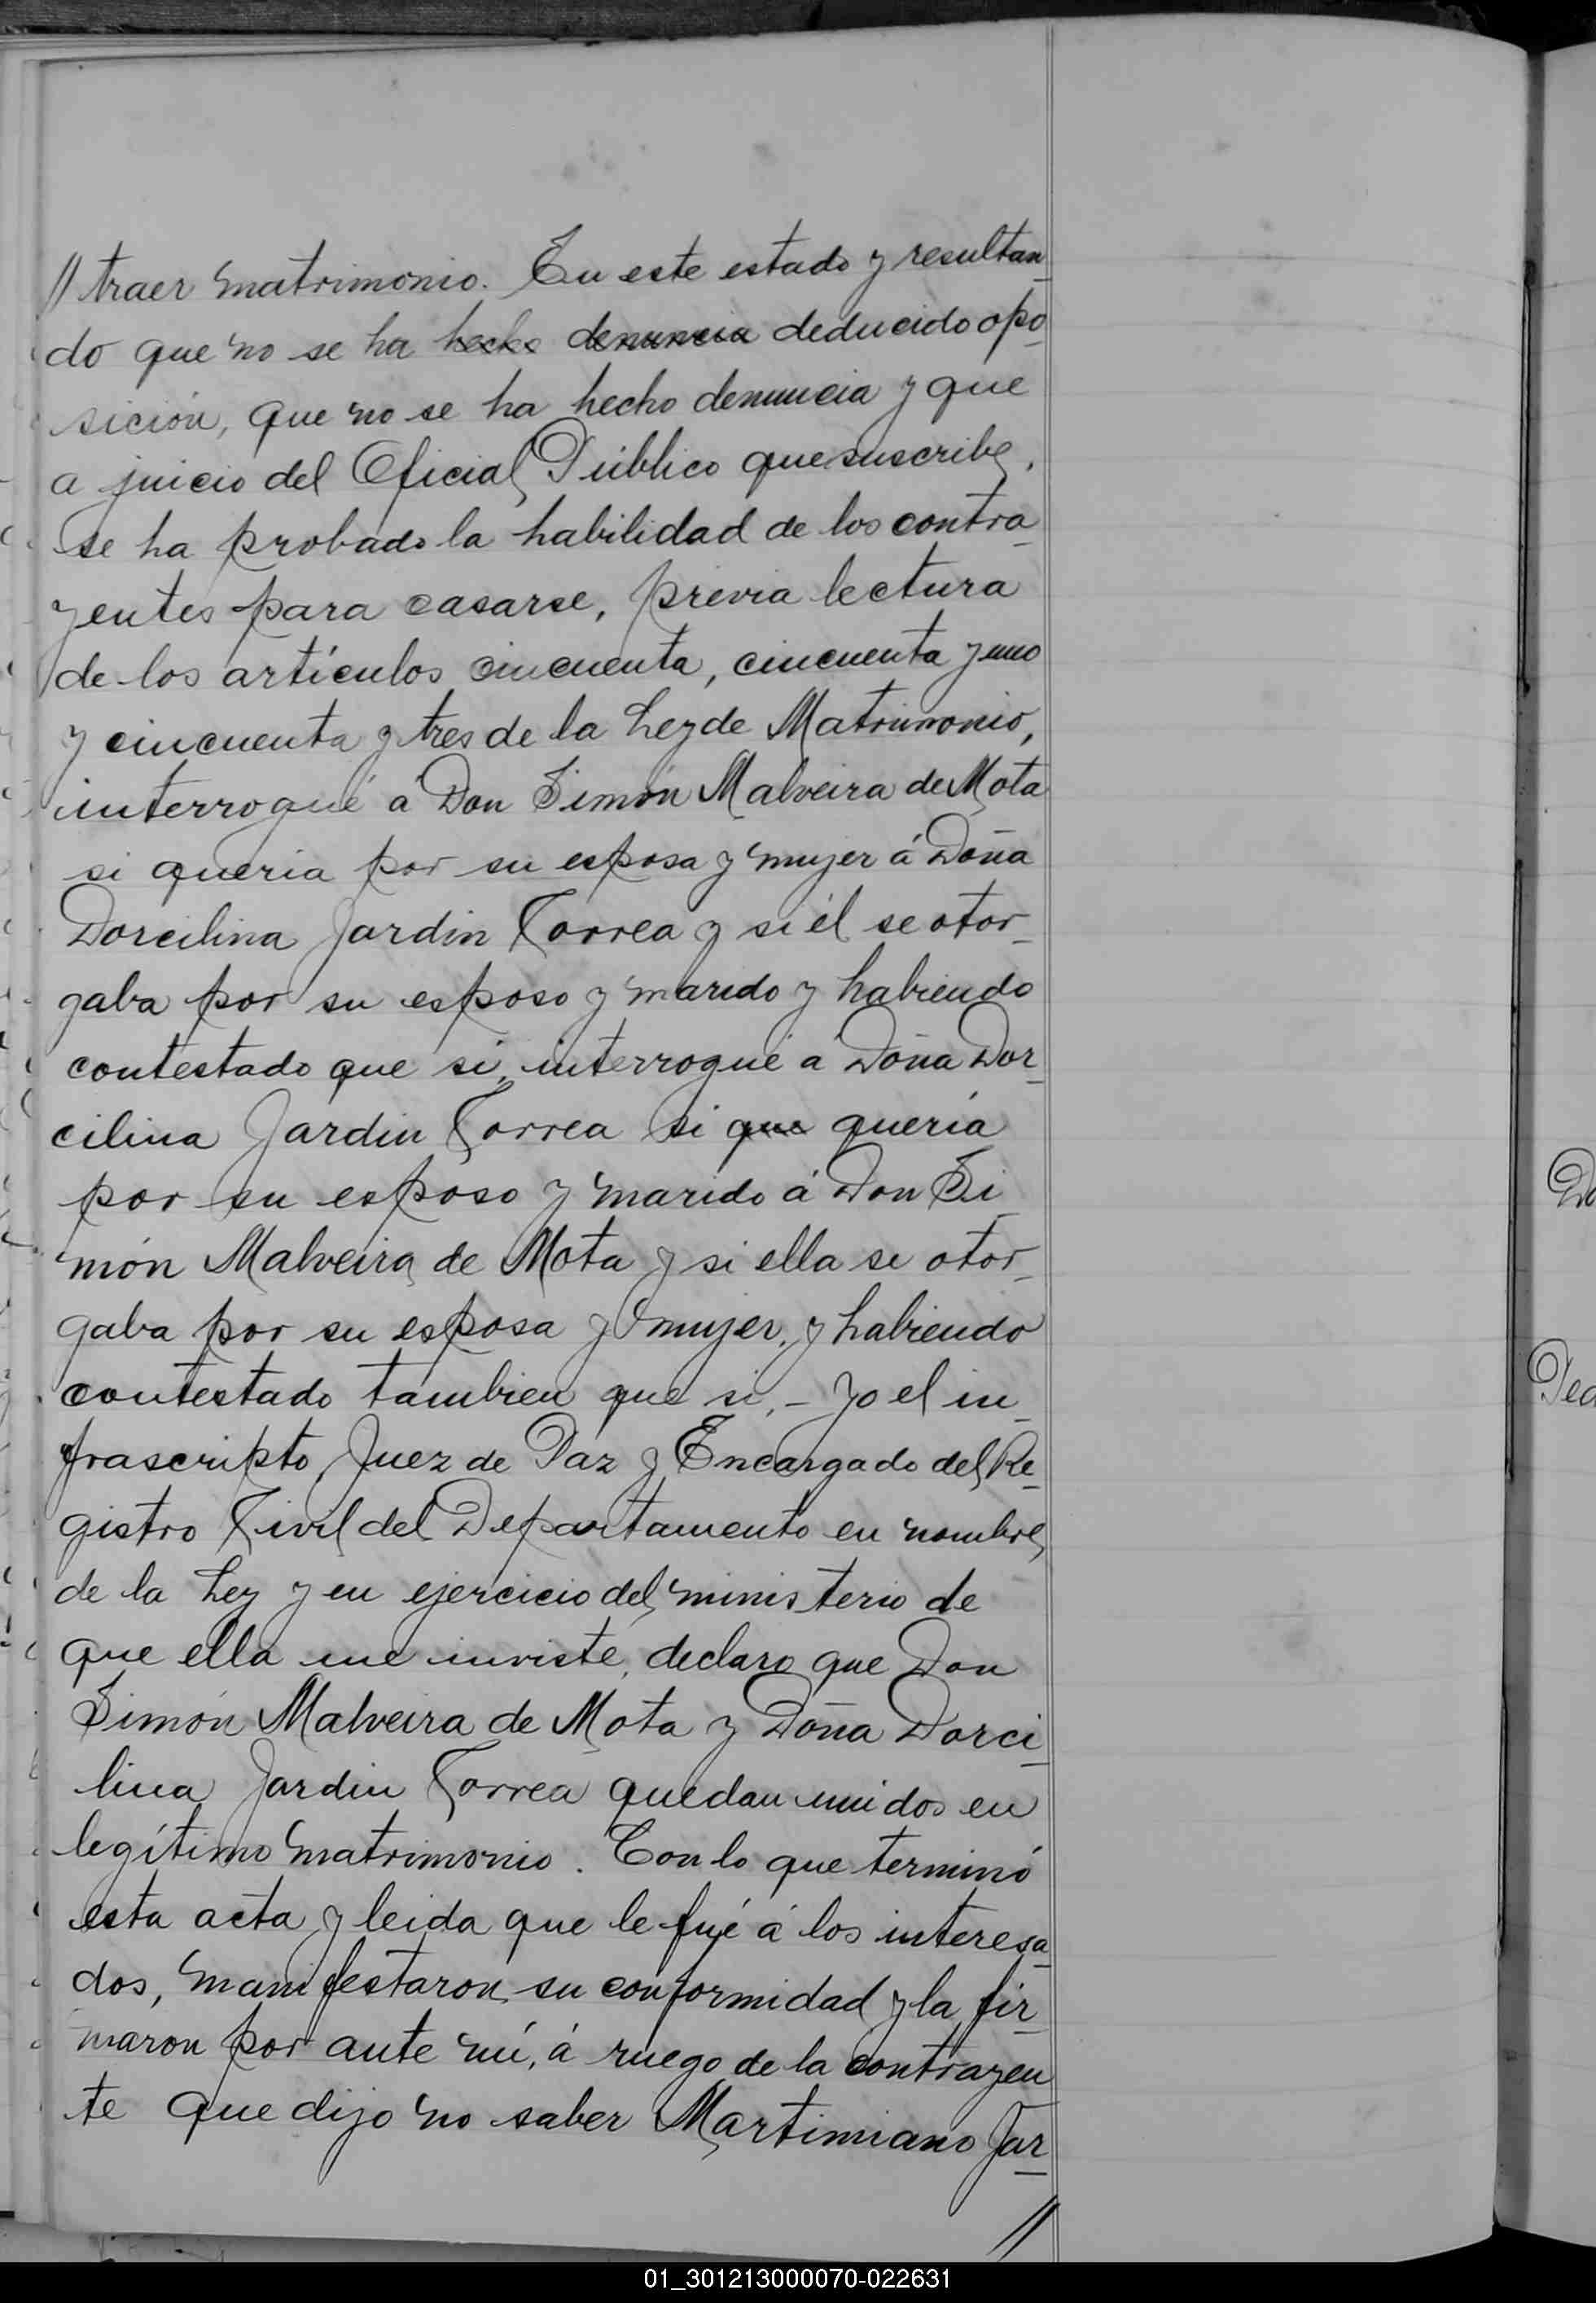 // traer matrimonio. En este estado y resultan-
do que no se ha hecho denuncia deducido opo-
sición, que no se ha hecho denuncia y que
a juicio del Oficial Público que suscribe,
se ha probado la habilidad de los contra-
yentes para casarse, previa lectura
de los artículos cincuenta, cincuenta y uno
y cincuenta y tres de la Ley de Matrimonio,
interrogué á Don Simón Malveira de Mota
si queria por su esposa y mujer á Doña
Dorcilina Jardin Correa y si él se otor-
gaba por su esposo y marido y habiendo
contestado que si, interrogué a Doña Dor-
cilina Jardin Correa si que quería
por su esposo y marido á Don Si-
món Malveira de Mota y si ella se otor-
gaba por su esposa y mujer, y habiendo
contestado tambien que si,- Yo el in-
frascripto Juez de Paz y Encargado del Re-
gistro Civil del Departamento en nombre
de la Ley y en ejercicio del ministerio de
que ella me inviste, declaro que Don
Simón Malveira de Mota y Doña Dorci-
lina Jardin Correa quedan unidos en
legítimo matrimonio. Con lo que terminó
esta acta y leida que le fué á los interesa-
dos, manifestaron su conformidad y la fir-
maron por ante mí, á ruego de la contrayen
te que dijo no saber Martimiano Jar-
//
01_301213000070-022631